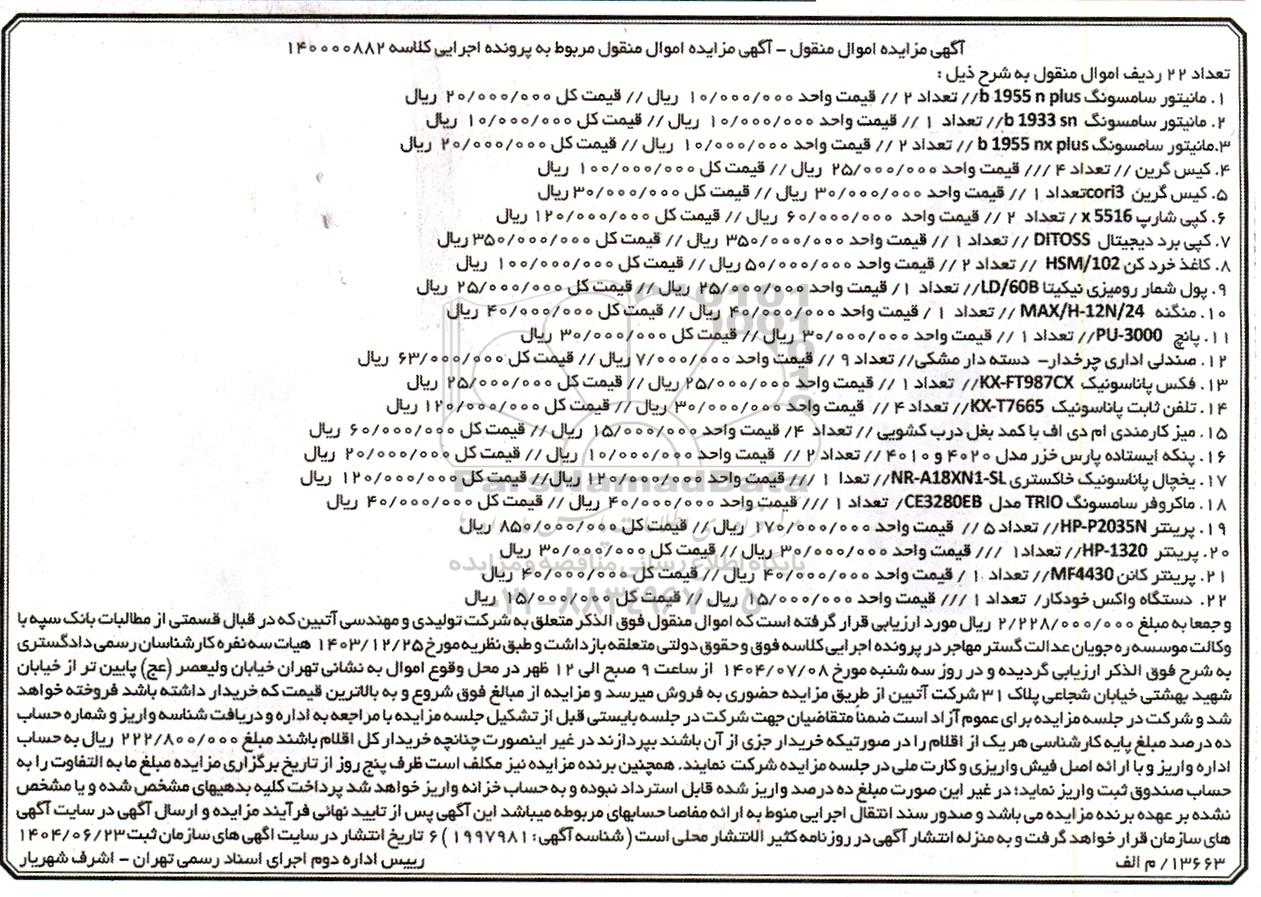 آگهی مزایده اموال منقول - آگهی مزایده اموال منقول مربوط به پرونده اجرایی کلاسه ۱۴۰۰۰۰۸۸۲
تعداد ۲۲ ردیف اموال منقول به شرح ذیل :
۱. مانیتور سامسونگ b 1955 n plus// تعداد ۲ // قیمت واحد ۱۰/۰۰۰/۰۰۰ ریال // قیمت کل ۲۰/۰۰۰/۰۰۰ ریال
۲. مانیتور سامسونگ b 1933 sn// تعداد ۱ // قیمت واحد ۱۰/۰۰۰/۰۰۰ ریال // قیمت کل ۱۰/۰۰۰/۰۰۰ ریال
۳.مانیتور سامسونگ b 1955 nx plus // تعداد ۲ // قیمت واحد ۱۰/۰۰۰/۰۰۰ ریال // قیمت کل ۲۰/۰۰۰/۰۰۰ ریال
۴. کیس گرین // تعداد ۴ /// قیمت واحد ۲۵/۰۰۰/۰۰۰ ریال // قیمت کل ۱۰۰/۰۰۰/۰۰۰ ریال
۵. کیس گرین cori3تعداد ۱ // قیمت واحد ۳۰/۰۰۰/۰۰۰ ریال // قیمت کل ۳۰/۰۰۰/۰۰۰ ریال
۶. کپی شارپ x 5516 / تعداد ۲ // قیمت واحد ۶۰/۰۰۰/۰۰۰ ریال // قیمت کل ۱۲۰/۰۰۰/۰۰۰ ریال
۷. کپی برد دیجیتال DITOSS // تعداد ۱ // قیمت واحد ۳۵۰/۰۰۰/۰۰۰ ریال // قیمت کل ۳۵۰/۰۰۰/۰۰۰ ریال
۸. کاغذ خرد کن HSM/102 // تعداد ۲ // قیمت واحد ۵۰/۰۰۰/۰۰۰ ریال // قیمت کل ۱۰۰/۰۰۰/۰۰۰ ریال
۹. پول شمار رومیزی نیکیتا LD/60B// تعداد ۱/ قیمت واحد ۲۵/۰۰۰/۰۰۰ ریال // قیمت کل ۲۵/۰۰۰/۰۰۰ ریال
۱۰. منگنه MAX/H-12N/24 // تعداد ۱ / قیمت واحد ۴۰/۰۰۰/۰۰۰ ریال // قیمت کل ۴۰/۰۰۰/۰۰۰ ریال
۱۱. پانچ PU-3000// تعداد ۱ // قیمت واحد ۳۰/۰۰۰/۰۰۰ ریال // قیمت کل ۳۰/۰۰۰/۰۰۰ ریال
۱۲. صندلی اداری چرخدار- دسته دار مشکی// تعداد ۹ // قیمت واحد ۷/۰۰۰/۰۰۰ ریال // قیمت کل ۶۳/۰۰۰/۰۰۰ ریال
۱۳. فکس پاناسونیک KX-FT987CX// تعداد ۱ // قیمت واحد ۲۵/۰۰۰/۰۰۰ ریال // قیمت کل ۲۵/۰۰۰/۰۰۰ ریال
۱۴. تلفن ثابت پاناسونیک KX-T7665// تعداد ۴ // قیمت واحد ۳۰/۰۰۰/۰۰۰ ریال // قیمت کل ۱۲۰/۰۰۰/۰۰۰ ریال
۱۵. میز کارمندی ام دی اف با کمد بغل درب کشویی // تعداد ۴/ قیمت واحد ۱۵/۰۰۰/۰۰۰ ریال // قیمت کل ۶۰/۰۰۰/۰۰۰ ریال
۱۶. پنکه ایستاده پارس خزر مدل ۴۰۲۰ و ۴۰۱۰ // تعداد ۲ // قیمت واحد ۱۰/۰۰۰/۰۰۰ ریال // قیمت کل ۲۰/۰۰۰/۰۰۰ ریال
۱۷. یخچال پاناسونیک خاکستری NR-A18XN1-SL// تعدا ۱ /// قیمت واحد ۱۲۰/۰۰۰/۰۰۰ ریال// قیمت کل ۱۲۰/۰۰۰/۰۰۰ ریال
۱۸. ماکروفر سامسونگ TRIO مدل CE3280EB/ تعداد ۱ /// قیمت واحد ۴۰/۰۰۰/۰۰۰ ریال // قیمت کل ۴۰/۰۰۰/۰۰۰ ریال
۱۹. پرینتر HP-P2035N// تعداد ۵ // قیمت واحد ۱۷۰/۰۰۰/۰۰۰ ریال // قیمت کل ۸۵۰/۰۰۰/۰۰۰ ریال
۲۰. پرینتر HP-1320// تعداد۱ /// قیمت واحد ۳۰/۰۰۰/۰۰۰ ریال // قیمت کل ۳۰/۰۰۰/۰۰۰ ریال
۲۱. پرینتر کانن MF4430// تعداد ۱ / قیمت واحد ۴۰/۰۰۰/۰۰۰ ریال // قیمت کل ۴۰/۰۰۰/۰۰۰ ریال
۲۲. دستگاه واکس خودکار/ تعداد ۱ /// قیمت واحد ۱۵/۰۰۰/۰۰۰ ریال // قیمت کل ۱۵/۰۰۰/۰۰۰ ریال
و جمعا به مبلغ ۲/۲۲۸/۰۰۰/۰۰۰ ریال مورد ارزیابی قرار گرفته است که اموال منقول فوق الذکر متعلق به شرکت تولیدی و مهندسی آتبین که در قبال قسمتی از مطالبات بانک سپه با
وکالت موسسه ره جویان عدالت گستر مهاجر در پرونده اجرایی کلاسه فوق و حقوق دولتی متعلقه بازداشت و طبق نظریه مورخ ۱۴۰۳/۱۲/۲۵ هیات سه نفره کارشناسان رسمی دادگستری
به شرح فوق الذکر ارزیابی گردیده و در روز سه شنبه مورخ ۱۴۰۴/۰۷/۰۸ از ساعت ۹ صبح الی ۱۲ ظهر در محل وقوع اموال به نشانی تهران خیابان ولیعصر (عج) پایین تر از خیابان
شهید بهشتی خیابان شجاعی پلاک ۳۱ شرکت آتبین از طریق مزایده حضوری به فروش میرسد و مزایده از مبالغ فوق شروع و به بالاترین قیمت که خریدار داشته باشد فروخته خواهد
شد و شرکت در جلسه مزایده برای عموم آزاد است ضمناً متقاضیان جهت شرکت در جلسه بایستی قبل از تشکیل جلسه مزایده با مراجعه به اداره و دریافت شناسه واریز و شماره حساب
ده درصد مبلغ پایه کارشناسی هر یک از اقلام را در صورتیکه خریدار جزی از آن باشند بپردازند در غیر اینصورت چنانچه خریدار کل اقلام باشند مبلغ ۲۲۲/۸۰۰/۰۰۰ ریال به حساب
اداره واریز و با ارائه اصل فیش واریزی و کارت ملی در جلسه مزایده شرکت نمایند. همچنین برنده مزایده نیز مکلف است ظرف پنج روز از تاریخ برگزاری مزایده مبلغ ما به التفاوت را به
حساب صندوق ثبت واریز نماید؛ در غیر این صورت مبلغ ده درصد واریز شده قابل استرداد نبوده و به حساب خزانه واریز خواهد شد پرداخت کلیه بدهیهای مشخص شده و یا مشخص
نشده بر عهده برنده مزایده می باشد و صدور سند انتقال اجرایی منوط به ارائه مفاصا حسابهای مربوطه میباشد این آگهی پس از تایید نهائی فرآیند مزایده و ارسال آگهی در سایت آگهی
های سازمان قرار خواهد گرفت و به منزله انتشار آگهی در روزنامه کثیر الانتشار محلی است ( شناسه آگهی: ۱۹۹۷۹۸۱ ) ۶ تاریخ انتشار در سایت اگهی های سازمان ثبت۱۴۰۴/۰۶/۲۳
۱۳۶۶۳/ م الف رییس اداره دوم اجرای اسناد رسمی تهران - اشرف شهریار
ParsNamadData
پایگاه اطلاع رسانی مناقصه و مزایده